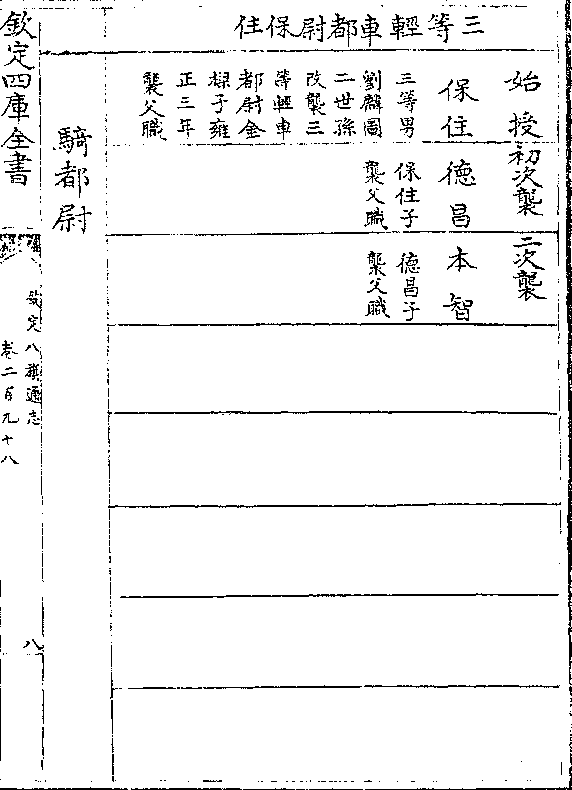 三等輕車都尉保住
始授
保住
三等男
劉麟圖
二世孫
改襲三
等輕車
都尉金
子雍
正三年
襲父職
初次襲
德昌
保住子
襲父職
二次襲
本智
德昌子
襲父職
騎都尉
欽定四庫全書
欽定八旗通志
卷二百九十八
八